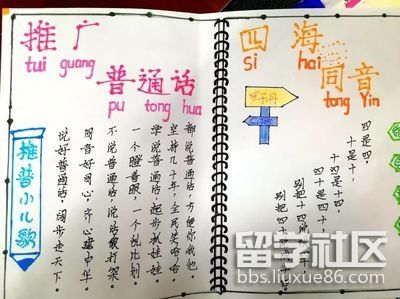 推广
tui guang
普通话
pu tong hua
推普小儿歌
都说普通话,方便你我他。
坚持几十年,全民笑哈哈
学说普通话,起步抓娃娃
一个瞪着眼,一个乱比划
不说普通话,说话像打架
同音好同心,齐心建中华
说好普通话,阔步走天下。
四海
si hai
同音
tong Yin
四是四,
十是十,
十四是十四,
四十是四十,
别把十四
别把四十
留学社区
bbs.liuxue86.com